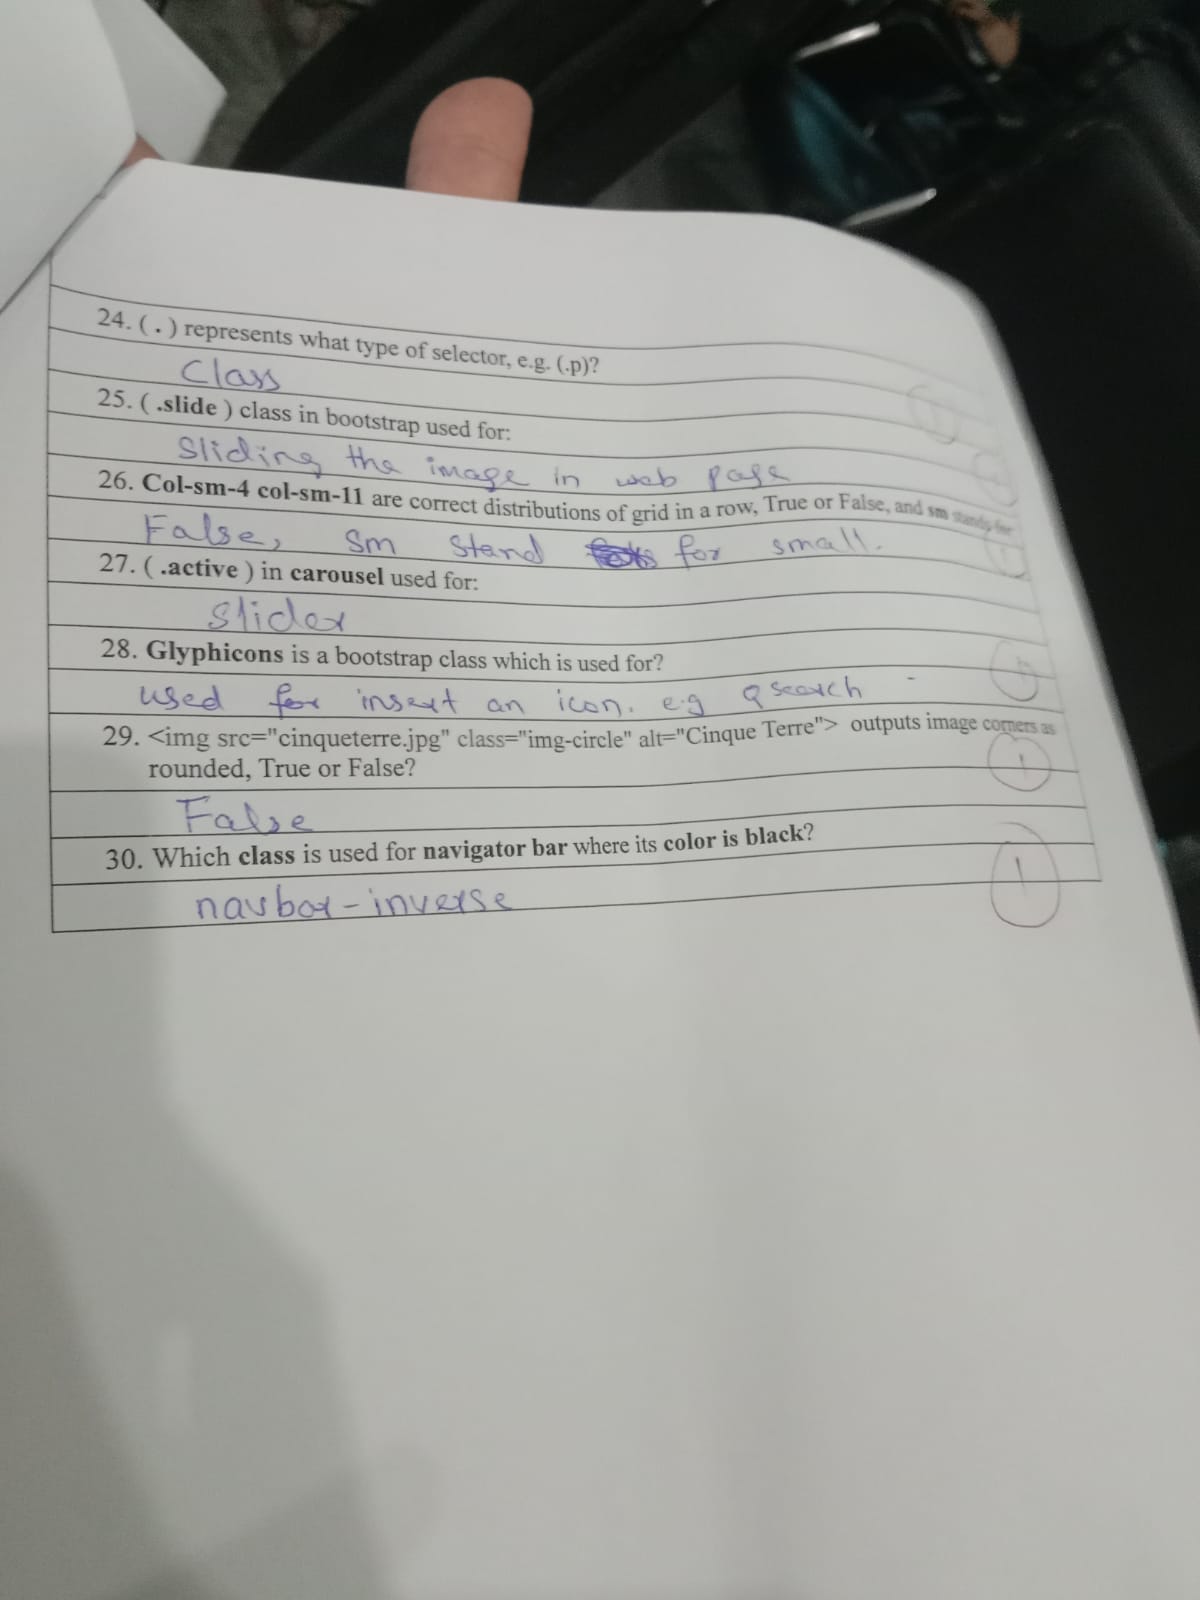 24. ( . ) represents what type of selector, e.g. (.p)?
Class
25. ( .slide ) class in bootstrap used for:
Sliding the image in web page
26. Col-sm-4 col-sm-11 are correct distributions of grid in a row, True or False, and sm stands for
False, Sm Stand for small.
27. ( .active ) in carousel used for:
Slider
28. Glyphicons is a bootstrap class which is used for?
used for insert an icon. e.g search
29. <img src="cinqueterre.jpg" class="img-circle" alt="Cinque Terre"> outputs image corners as
rounded, True or False?
1
False
30. Which class is used for navigator bar where its color is black?
1
navbar-inverse